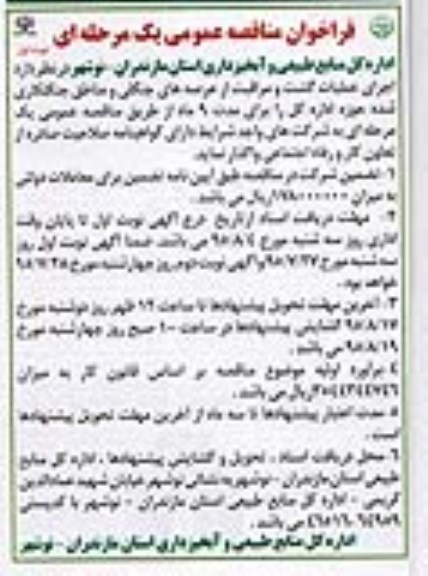 فراخوان مناقصه عمومی یک مرحله ای
نوبت اول
اداره کل منابع طبیعی و آبخیزداری استان مازندران - نوشهر در نظر دارد
اجرای عملیات گشت و مراقبت از عرصه های جنگلی و مناطق جنگلکاری
شده حوزه اداره کل را برای مدت ۹ ماه از طریق مناقصه عمومی یک
مرحله ای به شرکت های واجد شرایط دارای گواهینامه صلاحیت صادره از
تعاون کار و رفاه اجتماعی واگذار نماید.
۱- تضمین شرکت در مناقصه طبق آیین نامه تضمین برای معاملات دولتی
به میزان ریال می باشد.
۲- مهلت دریافت اسناد از تاریخ درج آگهی نوبت اول تا پایان وقت
اداری روز سه شنبه مورخ ۹۵/۸/۴ می باشد. ضمنا آگهی نوبت اول روز
سه شنبه مورخ ۹۵/۷/۲۷ و آگهی نوبت دوم روز چهارشنبه مورخ ۹۵/۷/۲۸
خواهد بود.
۳- آخرین مهلت تحویل پیشنهادها تا ساعت ۱۲ ظهر روز دوشنبه مورخ
۹۵/۸/۱۷ گشایش پیشنهادها در ساعت ۱۰ صبح روز چهارشنبه مورخ
۹۵/۸/۱۹ می باشد.
۴- برآورد اولیه موضوع مناقصه بر اساس قانون کار به میزان
ریال می باشد.
۵- مدت اعتبار پیشنهادها تا سه ماه از آخرین مهلت تحویل پیشنهادها
است.
۶- محل دریافت اسناد، تحویل و گشایش پیشنهادها، اداره کل منابع
طبیعی استان مازندران - نوشهر به نشانی نوشهر خیابان شهید عمادالدین
کریمی - اداره کل منابع طبیعی استان مازندران - نوشهر با کدپستی
می باشد.
اداره کل منابع طبیعی و آبخیزداری استان مازندران - نوشهر